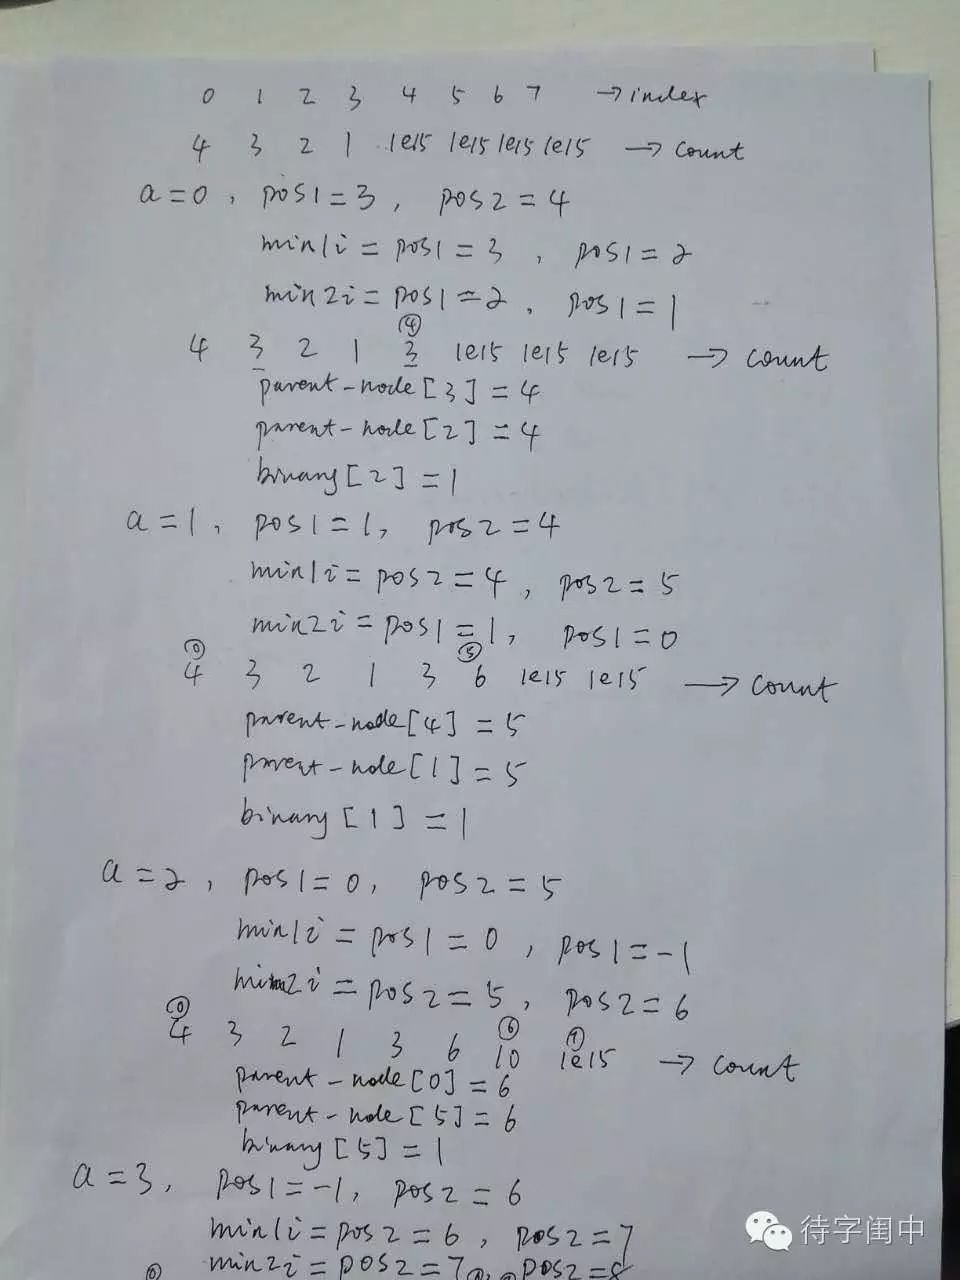 0 1 2 3 4 5 6 7 → index
4 3 2 1 1e15 1e15 1e15 1e15 → count
a=0, pos1=3, pos2=4
min1i=pos1=3, pos1=2
min2i=pos1=2, pos1=1
④
4 3 2 1 3 1e15 1e15 1e15 → count
parent-node[3]=4
parent-node[2]=4
binary[2]=1
a=1, pos1=1, pos2=4
min1i=pos2=4, pos2=5
min2i=pos1=1, pos1=0
⓪ ⑤
4 3 2 1 3 6 1e15 1e15 → count
parent-node[4]=5
parent-node[1]=5
binary[1]=1
a=2, pos1=0, pos2=5
min1i=pos1=0, pos1=-1
min2i=pos2=5, pos2=6
⓪ ⑥ ⑦
4 3 2 1 3 6 10 1e15 → count
parent-node[0]=6
parent-node[5]=6
binary[5]=1
a=3, pos1=-1, pos2=6
min1i=pos2=6, pos2=7
min2i=pos2=7, pos2=8
⓪
待字闺中